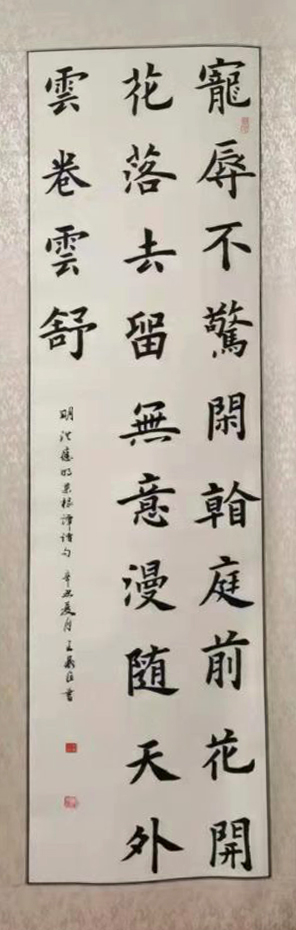 寵辱不驚閑看庭前花開
花落去留無意漫随天外
雲卷雲舒
明洪應明菜根譚诗句 辛丑夏月 王 書